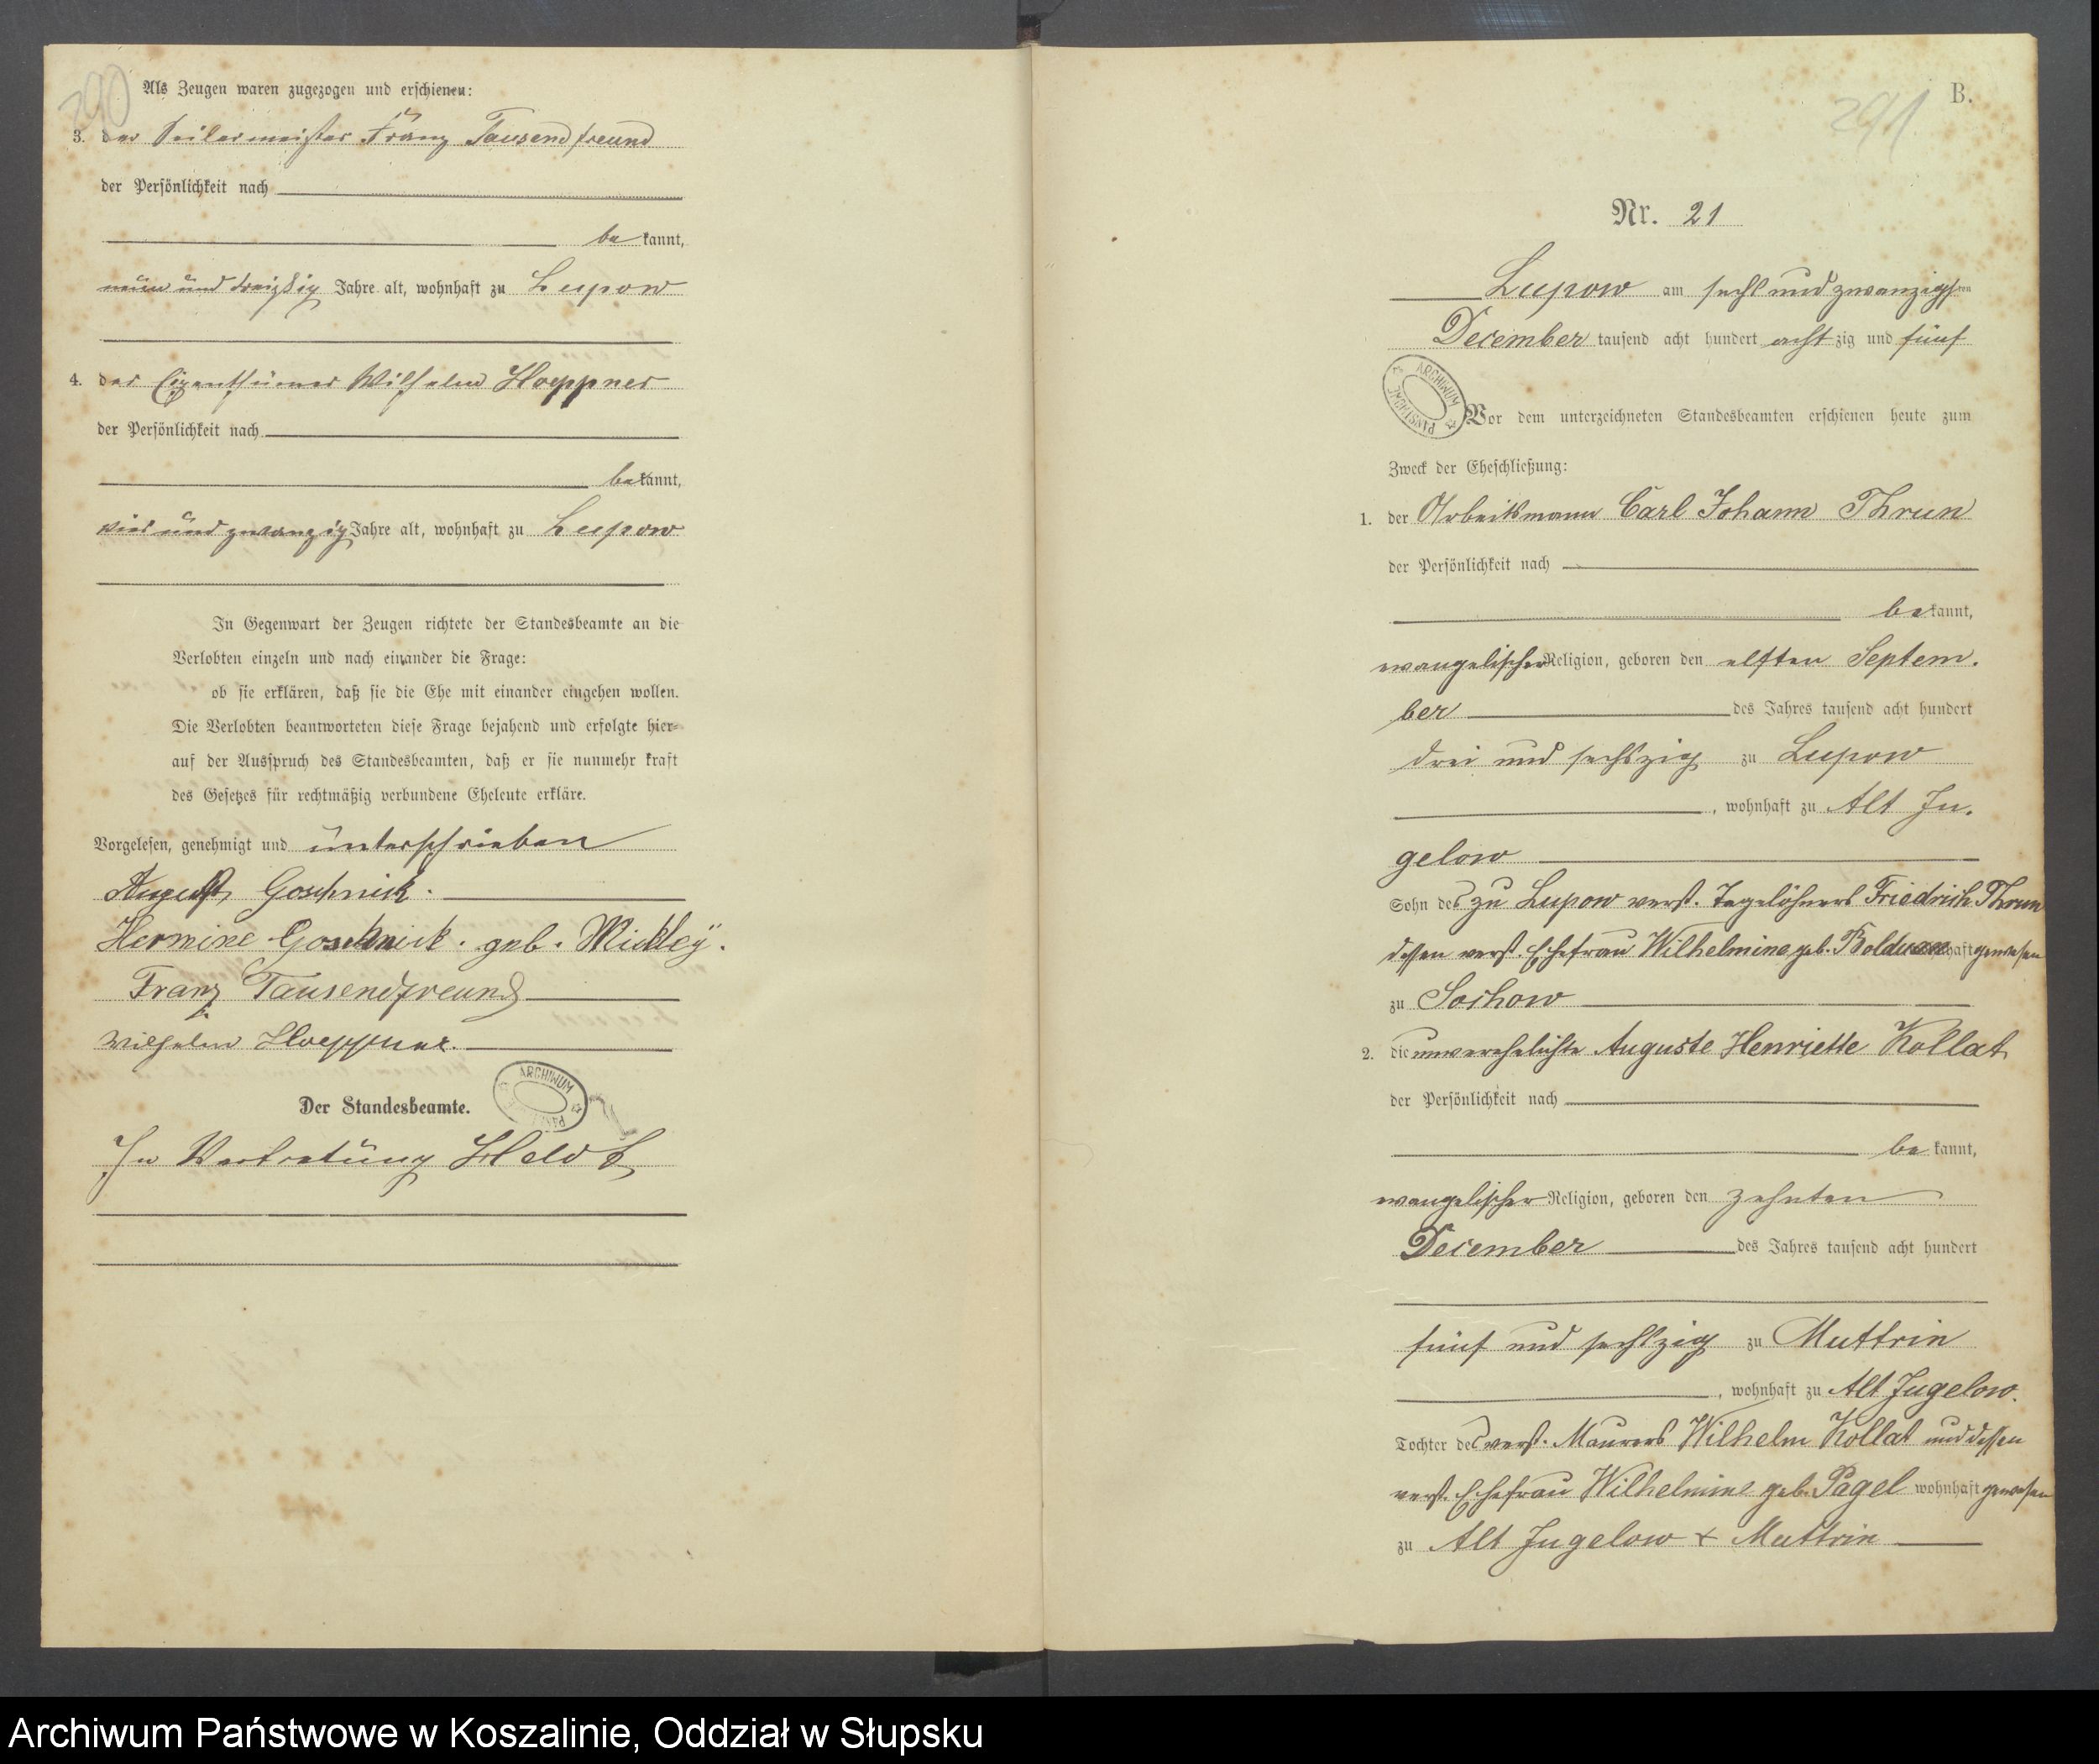 290
Als Zeugen waren zugezogen und erschienen:
3. der Seilermeister Franz Tausendfreund
der Persönlichkeit nach
be kannt,
neun und dreißig Jahre alt, wohnhaft zu Lupow
4. der Eigenthümer Wilhelm Hoeppner
der Persönlichkeit nach
bekannt,
vier und zwanzig Jahre alt, wohnhaft zu Lupow
In Gegenwart der Zeugen richtete der Standesbeamte an die
Verlobten einzeln und nach einander die Frage:
ob sie erklären, daß sie die Ehe mit einander eingehen wollen.
Die Verlobten beantworteten diese Frage bejahend und erfolgte hier-
auf der Ausspruch des Standesbeamten, daß er sie nunmehr kraft
des Gesetzes für rechtmäßig verbundene Eheleute erkläre.
Vorgelesen, genehmigt und unterschrieben
August Goschnick.
Hermine Goschnick. geb. Mickley.
Franz Tausendfreund
Wilhelm Hoeppner.
Der Standesbeamte.
ARCHIWUM
In Vertretung Heldt
291
B.
Nr. 21
Lupow am sechs und zwanzigsten
December tausend acht hundert acht zig und fünf
ARCHIWUM PAŃSTWOWE
Vor dem unterzeichneten Standesbeamten erschienen heute zum
Zweck der Eheschließung:
1. der Arbeitsmann Carl Johann Thrun
der Persönlichkeit nach
be kannt,
evangelischer Religion, geboren den elften Septem-
ber des Jahres tausend acht hundert
drei und sechszig zu Lupow
, wohnhaft zu Alt Ju-
gelow
Sohn des zu Lupow verst. Tagelöhners Friedrich Thrun
dessen verst. Ehefrau Wilhelmine geb. Bolduan haft gewesen
zu Sochow
2. die unverehelichte Auguste Henriette Kollat
der Persönlichkeit nach
be kannt,
evangelischer Religion, geboren den zehnten
December des Jahres tausend acht hundert
fünf und sechszig zu Muttrin
, wohnhaft zu Alt Jugelow.
Tochter des verst. Maurers Wilhelm Kollat und dessen
verst. Ehefrau Wilhelmine geb. Pagel wohnhaft gewesen
zu Alt Jugelow + Muttrin
Archiwum Państwowe w Koszalinie, Oddział w Słupsku